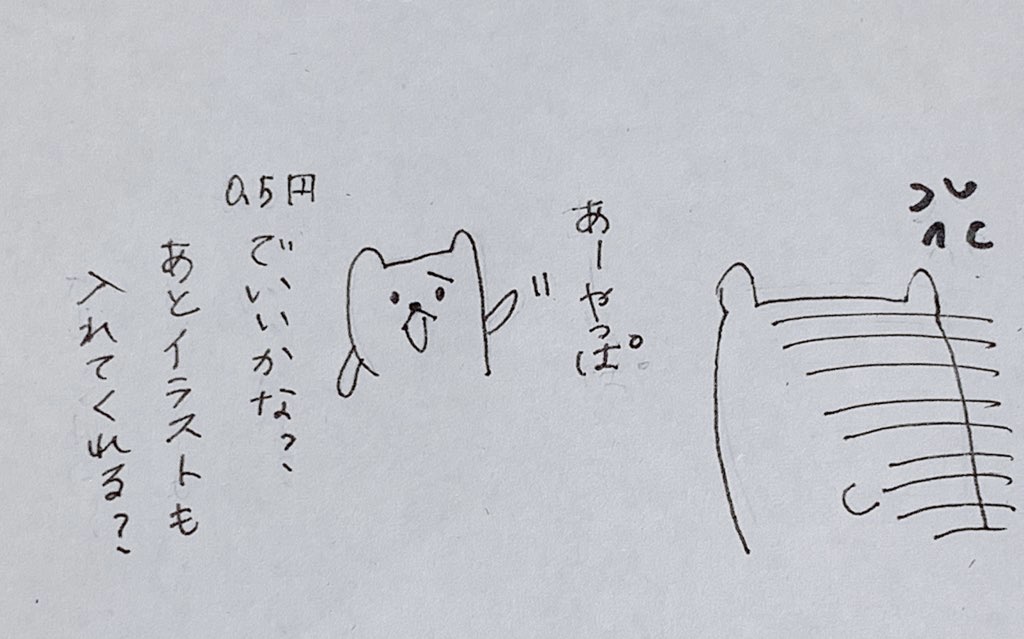 あーやっぱ
0.5円
でいいかな?、
あとイラストも
入れてくれる?